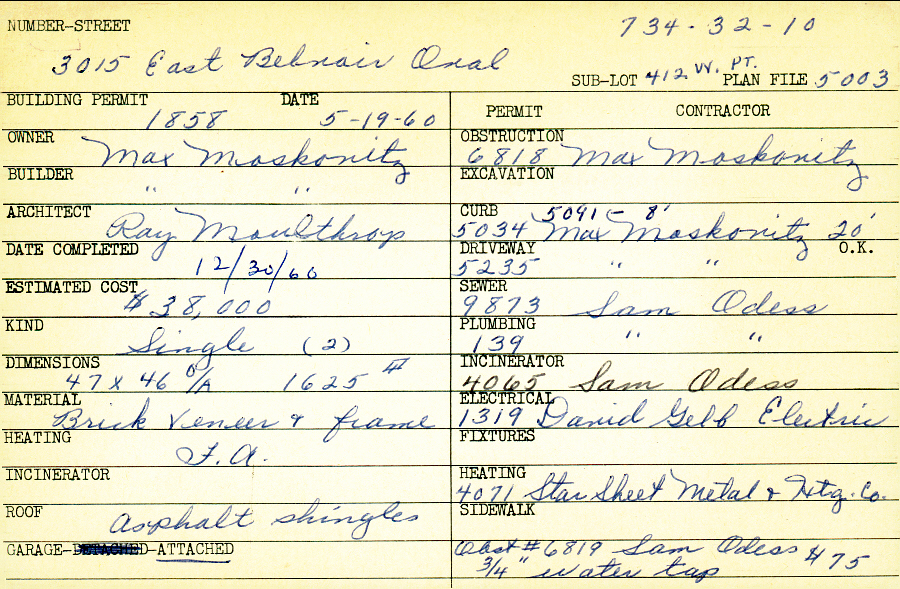 NUMBER-STREET 734-32-10
3015 East Belvoir Oval
SUB-LOT 412 W. PT. PLAN FILE 5003
BUILDING PERMIT DATE
1858 5-19-60
OWNER Max Moskovitz
BUILDER " "
ARCHITECT Ray Moulthrop
DATE COMPLETED 12/30/60
ESTIMATED COST $38,000
KIND Single (2)
DIMENSIONS 47 x 46 O/A 1625 #
MATERIAL Brick Veneer & frame
HEATING F.A.
INCINERATOR
ROOF asphalt shingles
GARAGE-DETACHED-ATTACHED
PERMIT CONTRACTOR
OBSTRUCTION
6818 Max Moskovitz
EXCAVATION
CURB 5091 - 8'
5034 Max Moskovitz 20'
DRIVEWAY O.K.
5235 " "
SEWER
9873 Sam Odess
PLUMBING
139 " "
INCINERATOR
4065 Sam Odess
ELECTRICAL
1319 David Gelb Electric
FIXTURES
HEATING
4071 Star Sheet Metal & Htg. Co.
SIDEWALK
Obst #6819 Sam Odess $75
3/4" water tap